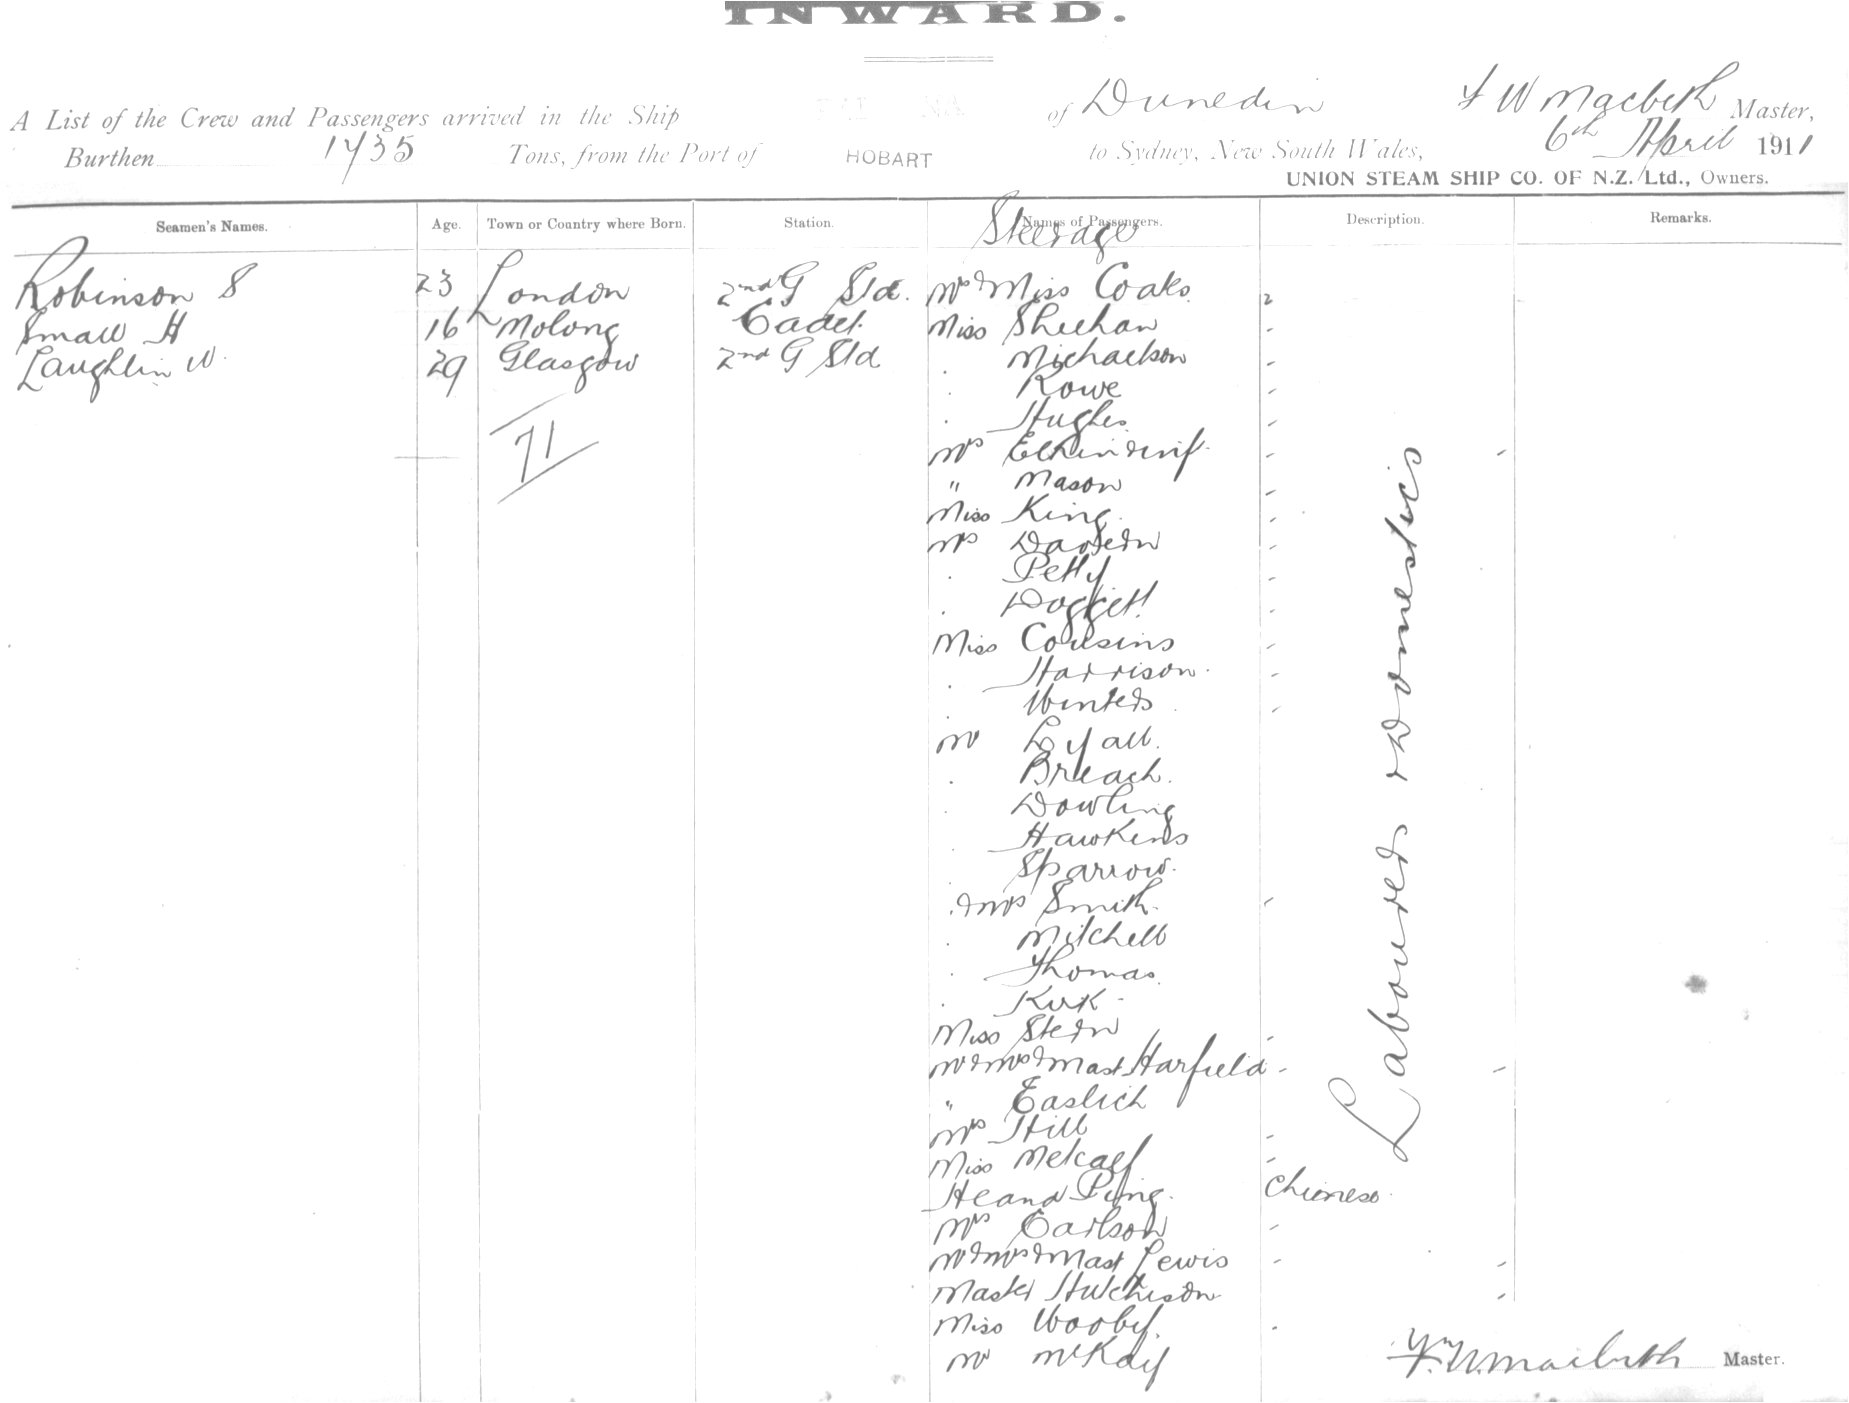 INWARD.
A List of the Crew and Passengers arrived in the Ship of Dunedin F W Macbeth Master,
Burthen 1735 Tons, from the Port of HOBART to Sydney, New South Wales, 6th April 1911
UNION STEAM SHIP CO. OF N.Z. Ltd., Owners.
Seamen's Names. Age. Town or Country where Born. Station. Names of Passengers. Description. Remarks.
Steerage
Robinson S 23 London 2nd G Std. Mrs & Miss Coaks 2
Small H 16 Molong Cadet Miss Sheehan
Laughlin W. 29 Glasgow 2nd G Std . Michaelson
. Rowe
. Hughes
71
Mrs
" Mason
Miss King
Mrs
. Petty
. Doggett
Miss Cousins
. Harrison
. Winters
Mr Lyall
. Breach
. Dowling
. Hawkins
. Sparrow
. & Mrs Smith
. Mitchell
. Thomas
. Kirk
Miss Stern
Mr & Mrs & Mast Harfield
" Easlich
Mrs Hill
Miss Metcalf
Heand Ping Chinese
Mrs Carlson
Mr & Mrs & Mast Lewis
Master Hutchison
Miss Wooby
Mr McKay
Labourers & Domestics
F. W. Macbeth Master.